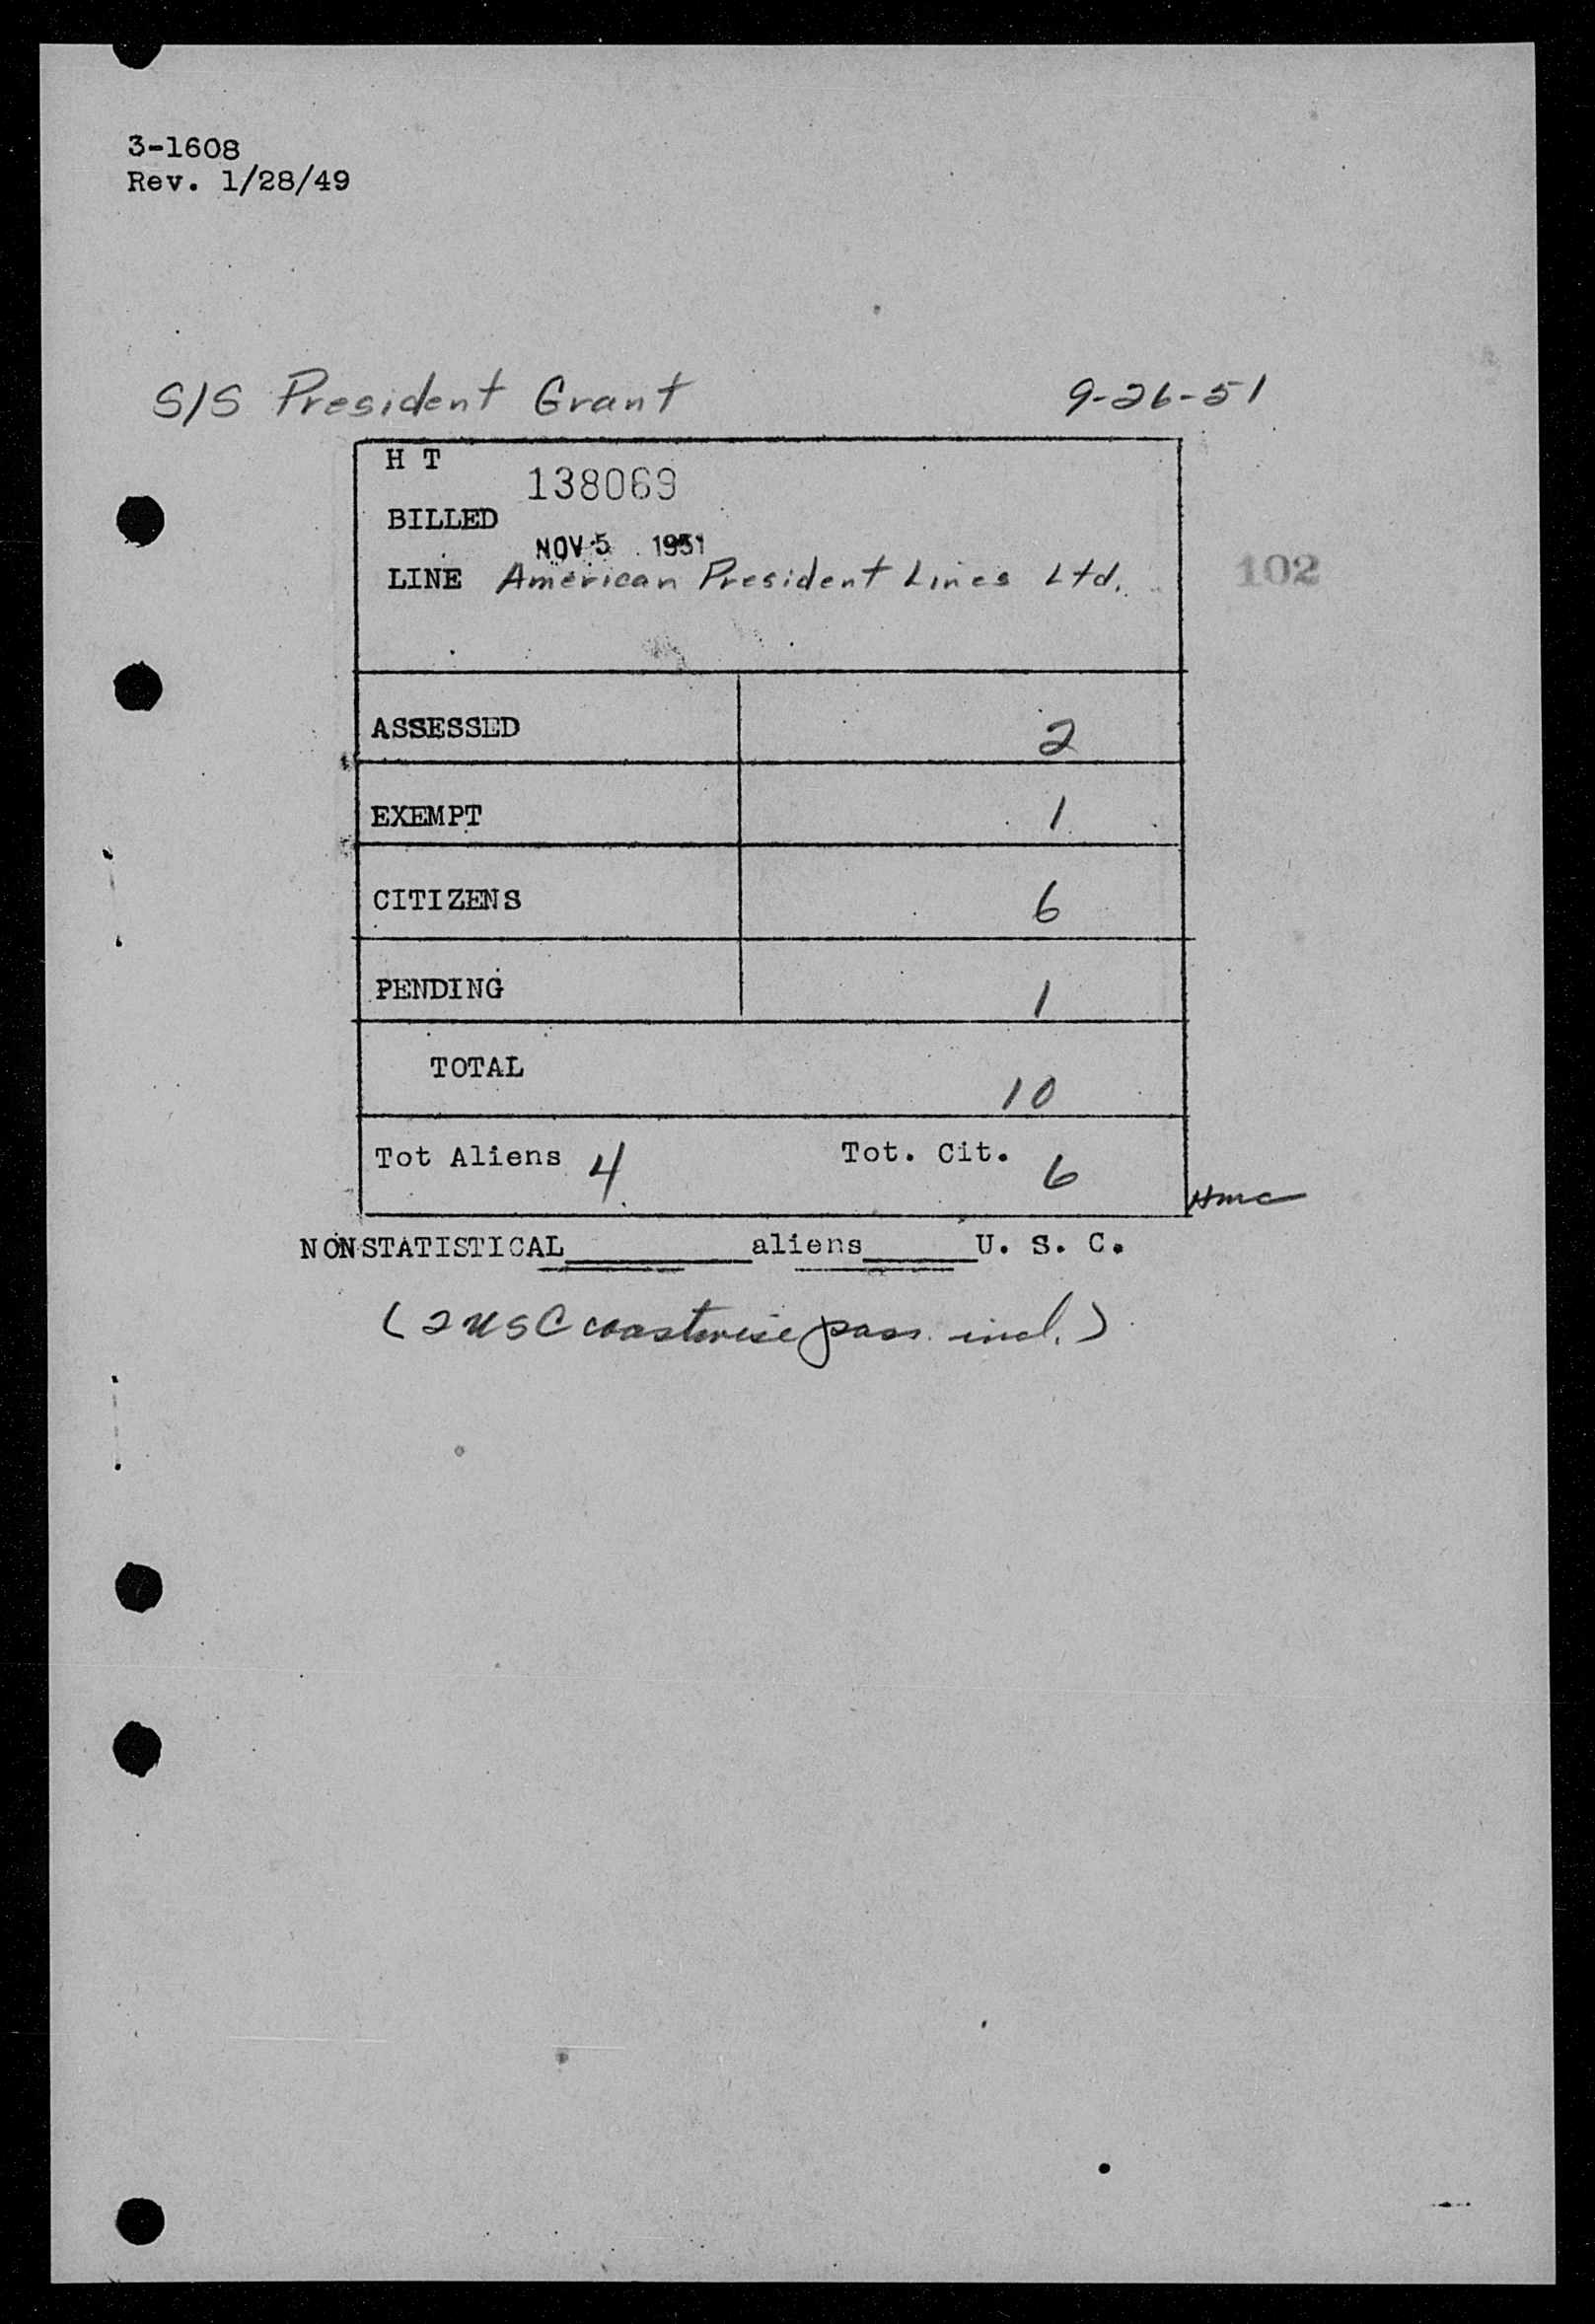 3-1608
Rev. 1/28/49
S/S President Grant 9-26-51
H T
138069
BILLED
NOV 5 1951
LINE American President Lines Ltd.
102
ASSESSED 2
EXEMPT 1
CITIZENS 6
PENDING 1
TOTAL 10
Tot Aliens 4 Tot. Cit. 6
Hmc
NONSTATISTICAL________aliens_____U. S. C.
(2 USC coastwise pass. incl.)